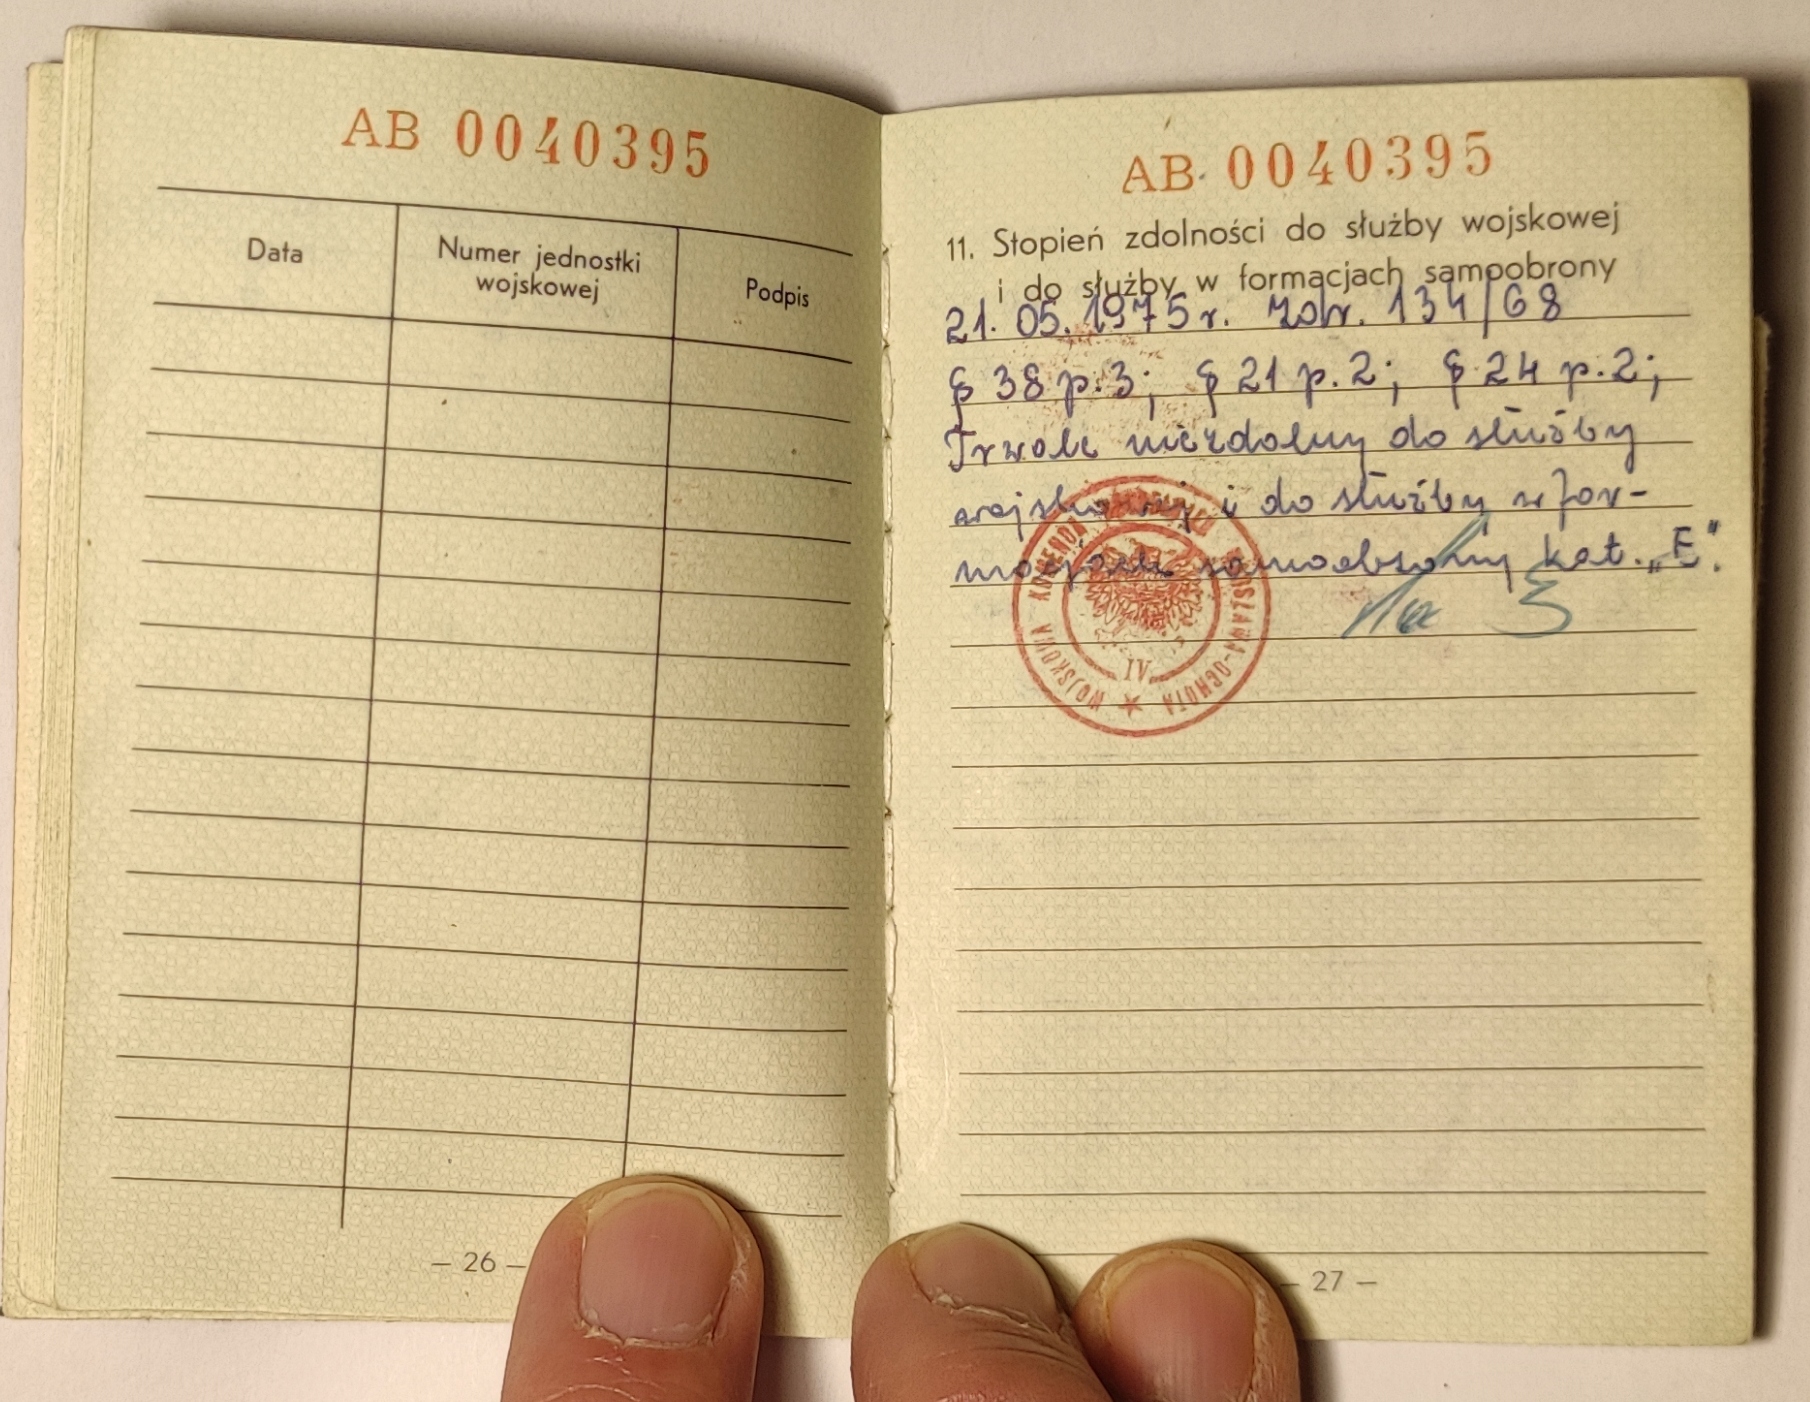 AB 0040395
Data
Numer jednostki
wojskowej
Podpis
– 26 –
AB 0040395
11. Stopień zdolności do służby wojskowej
i do służby w formacjach samoobrony
21. 05. 1975 r. 134/68
§ 38 p. 3; § 21 p. 2; § 24 p. 2;
Trwale niezdolny do służby
wojskowej i do służby w for-
macjach samoobrony kat. „E".
WOJSKOWA KOMENDA WARSZAWA-OCHOTA
IV
– 27 –